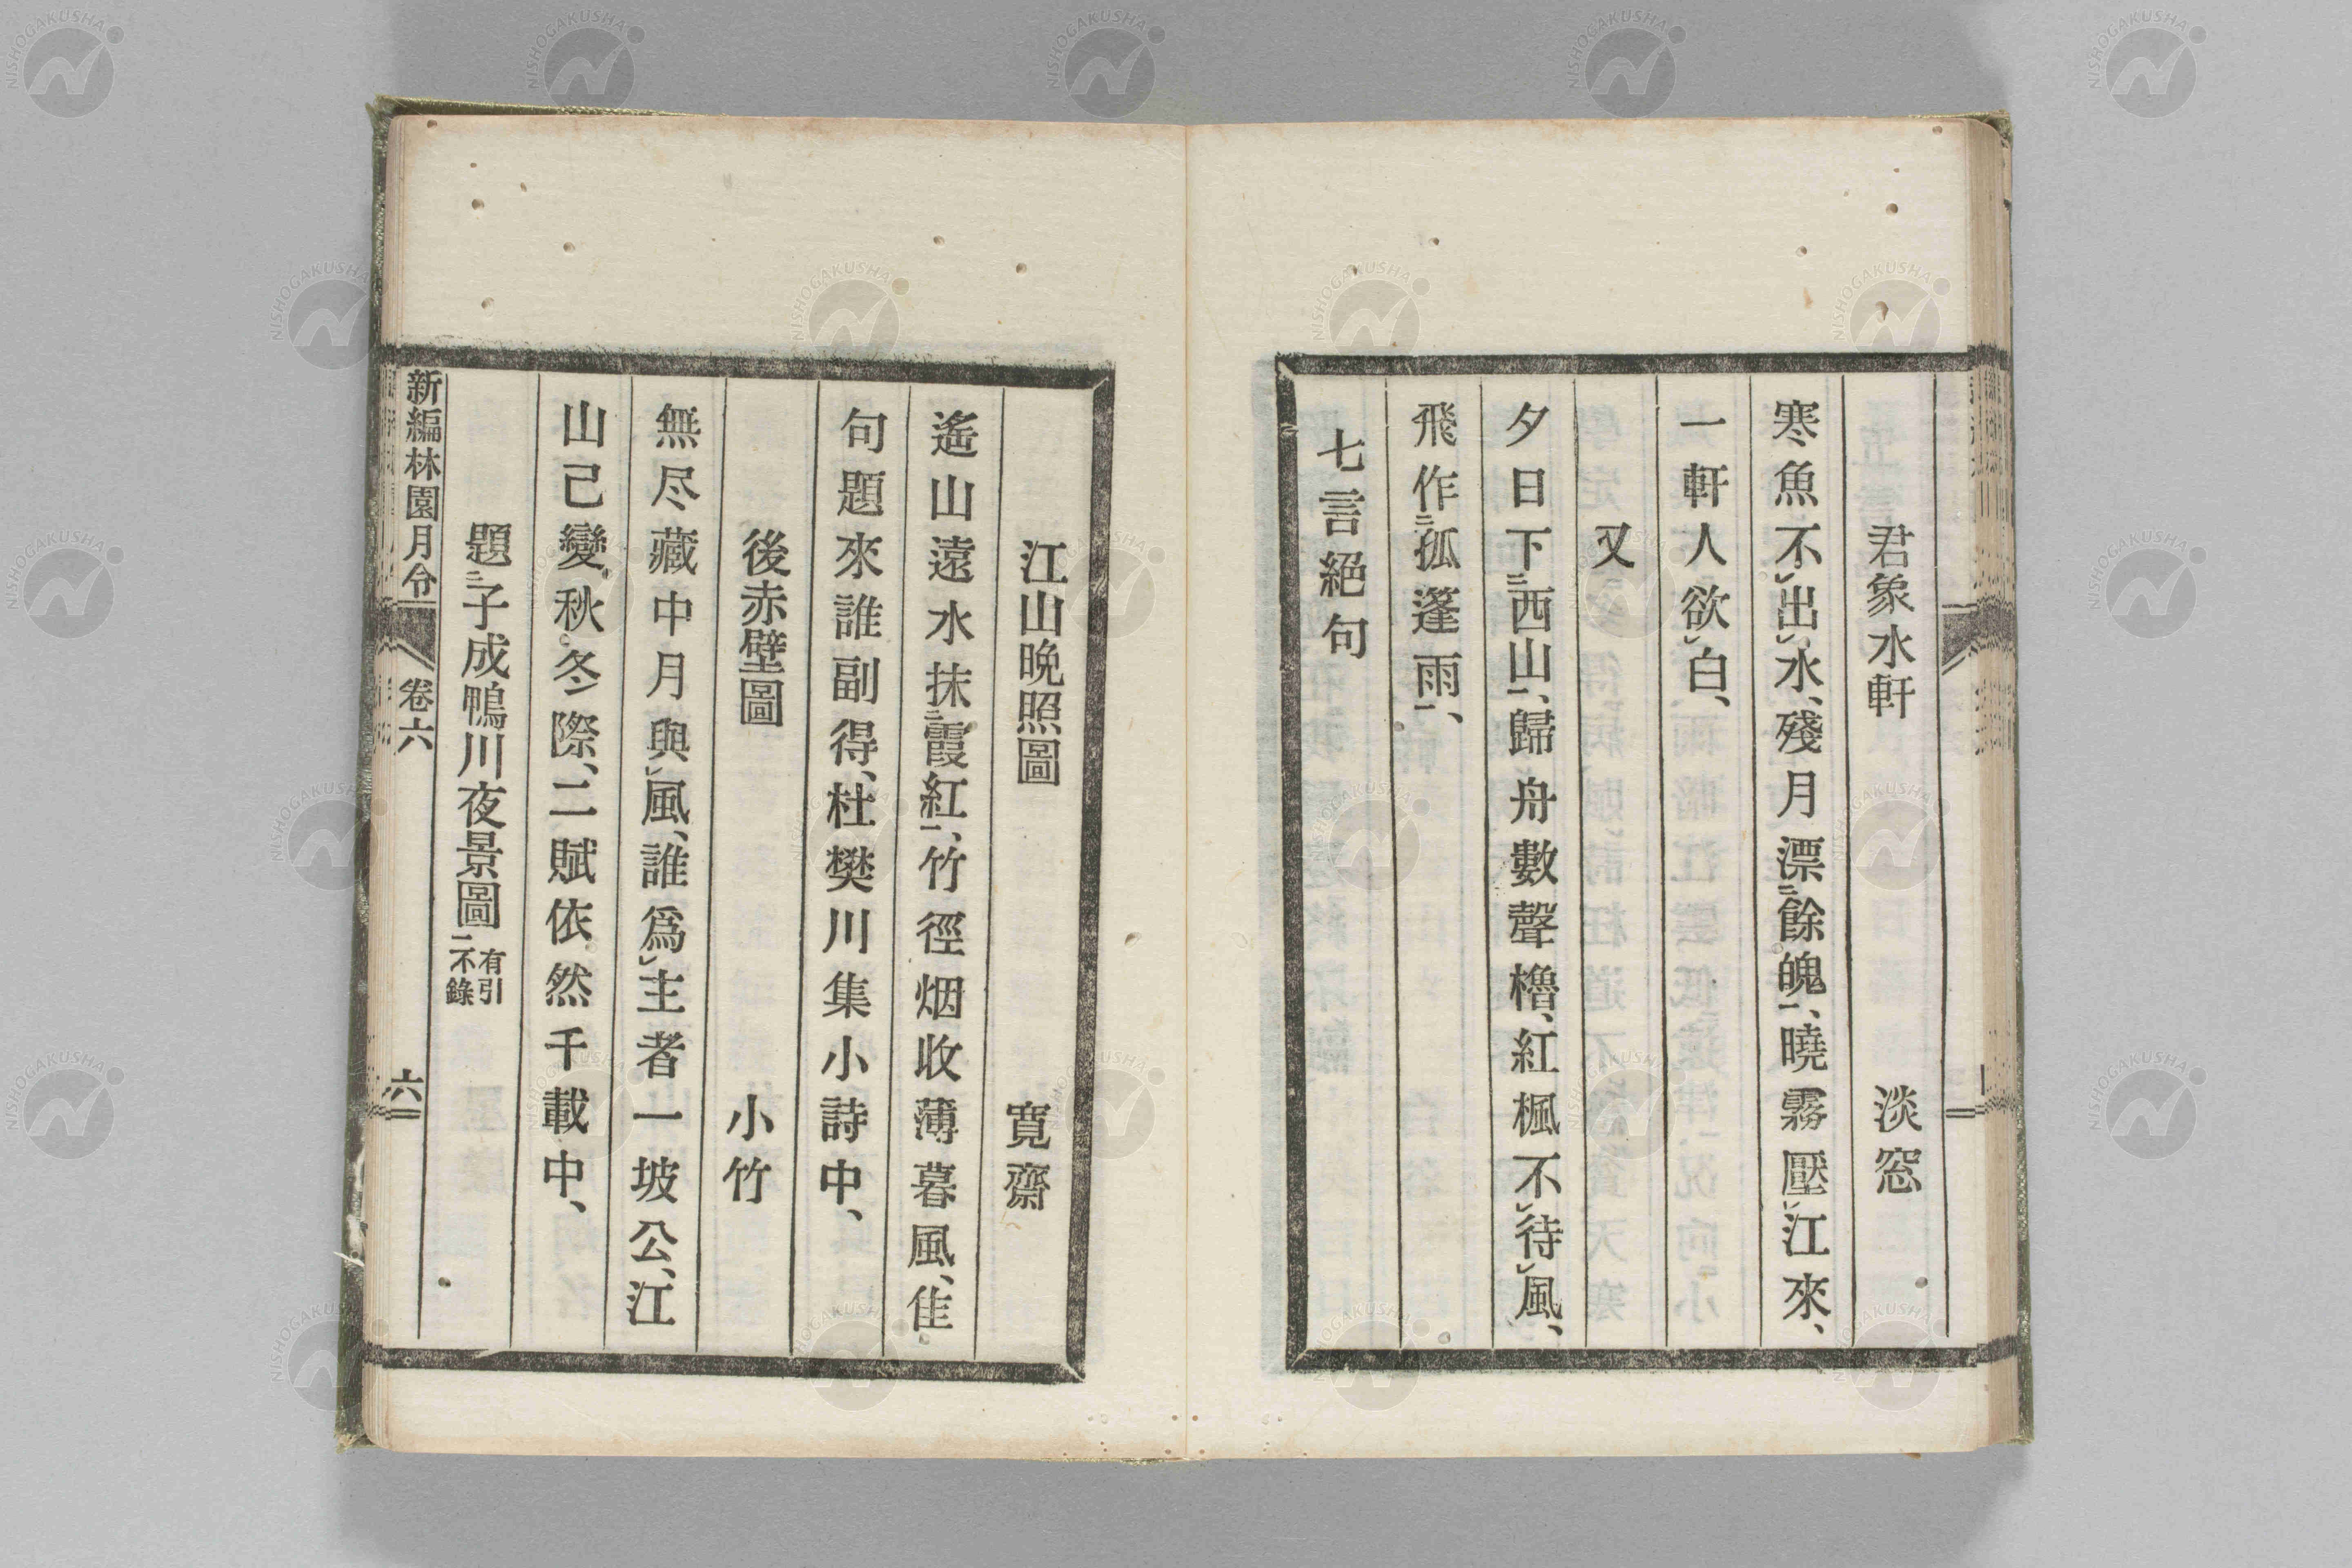 君象水軒　淡窓
寒魚不㆑出㆑水、殘月漂㆓餘魄㆒、曉霧壓㆑江來、
一軒人欲㆑白、
又
夕日下㆓西山㆒、歸舟數聲櫓、紅楓不㆑待㆑風、
飛作㆓孤篷雨㆒、
七言絕句
江山晩照圖　寛齋
遙山遠水抹㆓霞紅㆒、竹徑烟收薄暮風、佳
句題來誰副得、杜樊川集小詩中、
後赤壁圖　小竹
無尽藏中月與㆑風、誰爲㆑主者一坡公、江
山已變秋冬際、二賦依然千載中、
題㆓子成鴨川夜景圖㆒有引不錄
新編林園月令　卷六　六
NISHOGAKUSHA